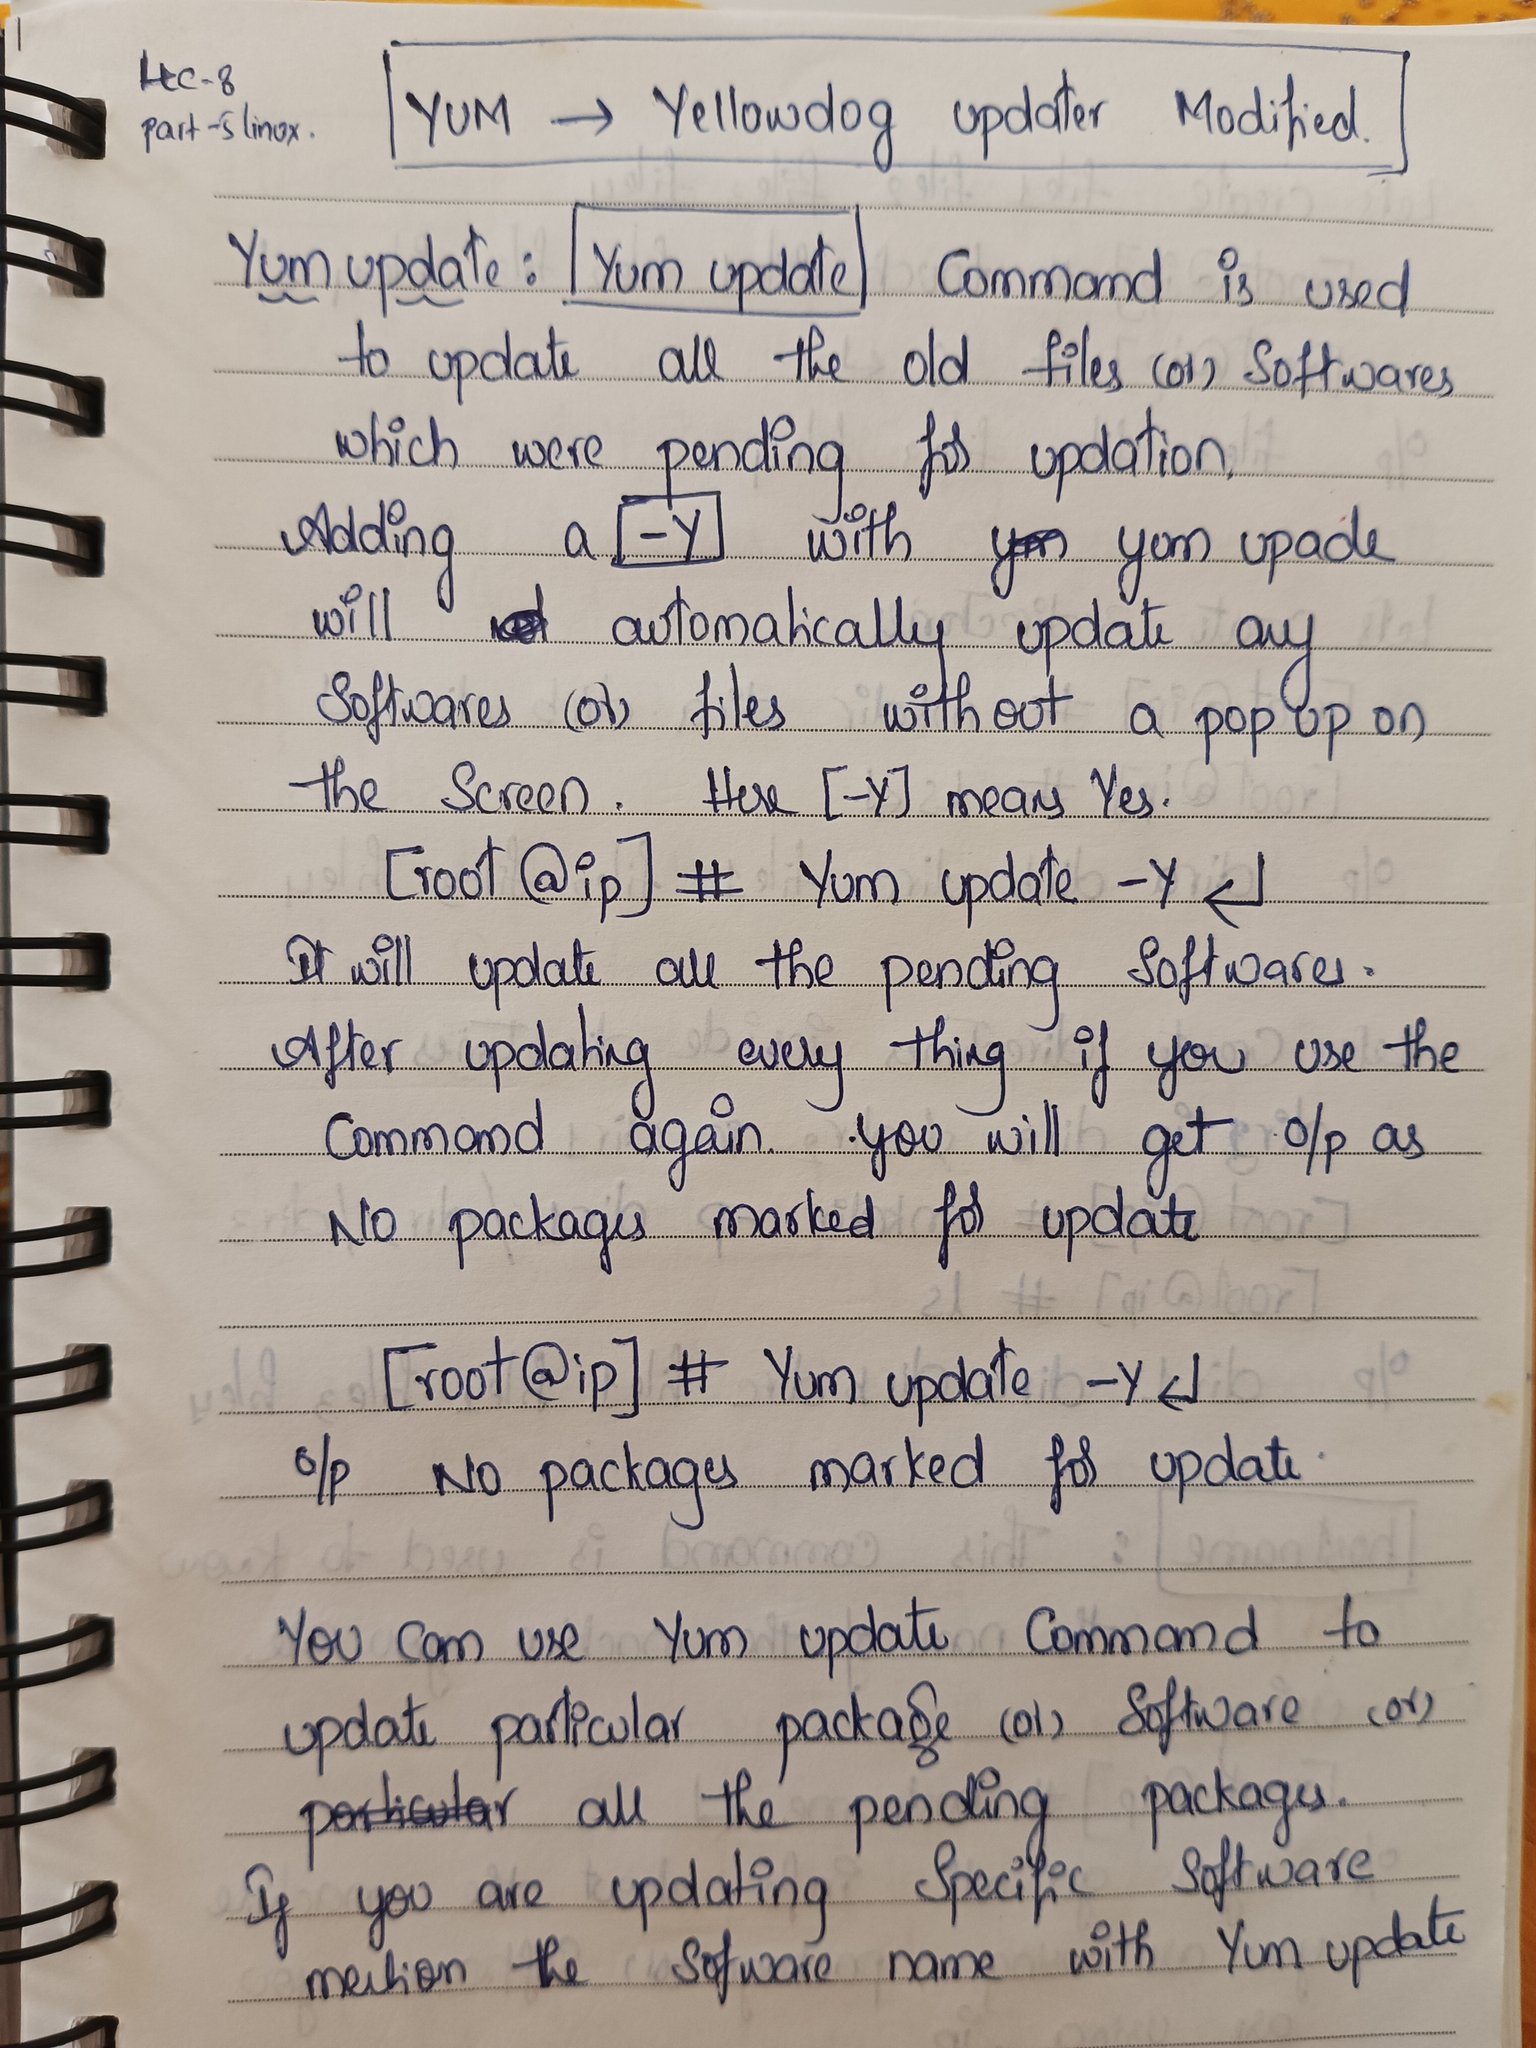 Lec-8
part-5 linux.
YUM → Yellowdog updater Modified.
Yum update: Yum update Command is used
to update all the old files (or) Softwares
which were pending for updation.
Adding a -Y with yum yum upade
will automatically update any
Softwares (or) files without a pop up on
the Screen. Here [-Y] means Yes.
[root@ip] # Yum update -Y ↵
It will update all the pending Softwares.
After updating every thing if you use the
Command again. you will get o/p as
No packages marked for update
[root@ip] # Yum update -Y ↵
o/p No packages marked for update.
You can use Yum update Command to
update particular package (or) Software (or)
particular all the pending packages.
If you are updating Specific Software
mention the Software name with Yum update